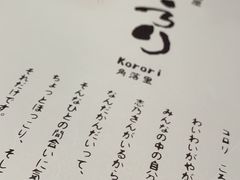 ろり
Korori
角落里
コロリ ころ
わいわいがやが
みんなの中の自分
志乃さんがいるから
なんだかんだいって、
そんなひとの間合いに気
ちょっとほっこり、そして
それだけです。